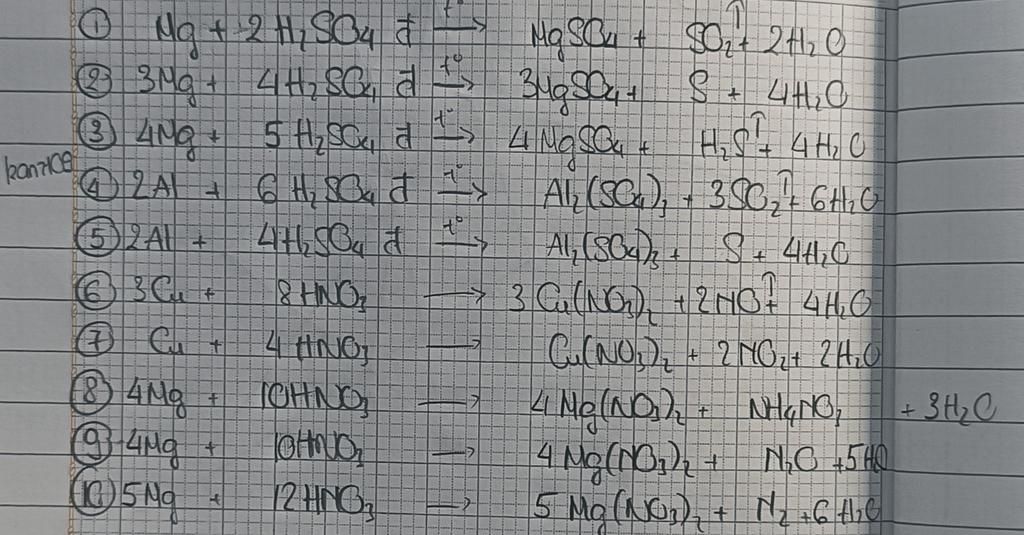 ① Mg + 2H₂SO₄ đ →(t°) MgSO₄ + SO₂↑ + 2H₂O
② 3Mg + 4H₂SO₄ đ →(t°) 3MgSO₄ + S + 4H₂O
③ 4Mg + 5H₂SO₄ đ →(t°) 4MgSO₄ + H₂S↑ + 4H₂O
④ 2Al + 6H₂SO₄ đ →(t°) Al₂(SO₄)₃ + 3SO₂↑ + 6H₂O
⑤ 2Al + 4H₂SO₄ đ →(t°) Al₂(SO₄)₃ + S + 4H₂O
⑥ 3Cu + 8HNO₃ → 3Cu(NO₃)₂ + 2NO↑ + 4H₂O
⑦ Cu + 4HNO₃ → Cu(NO₃)₂ + 2NO₂ + 2H₂O
⑧ 4Mg + 10HNO₃ → 4Mg(NO₃)₂ + NH₄NO₃ + 3H₂O
⑨ 4Mg + 10HNO₃ → 4Mg(NO₃)₂ + N₂O + 5H₂O
⑩ 5Mg + 12HNO₃ → 5Mg(NO₃)₂ + N₂ + 6H₂O